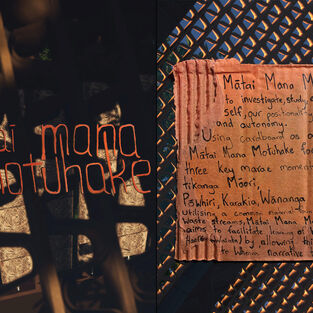 mana
motuhake
Mātai Mana M
to investigate, study, e
self, our positionality
and autonomy.
Using cardboard as a
Mātai Mana Motuhake fo
three key marae moment
tikanga Māori,
Pōwhiri, Karakia, Wānanga
Utilising a common material
waste streams, Mātai Mana M
aims to facilitate learning of
by allowing th
to whānau narrative